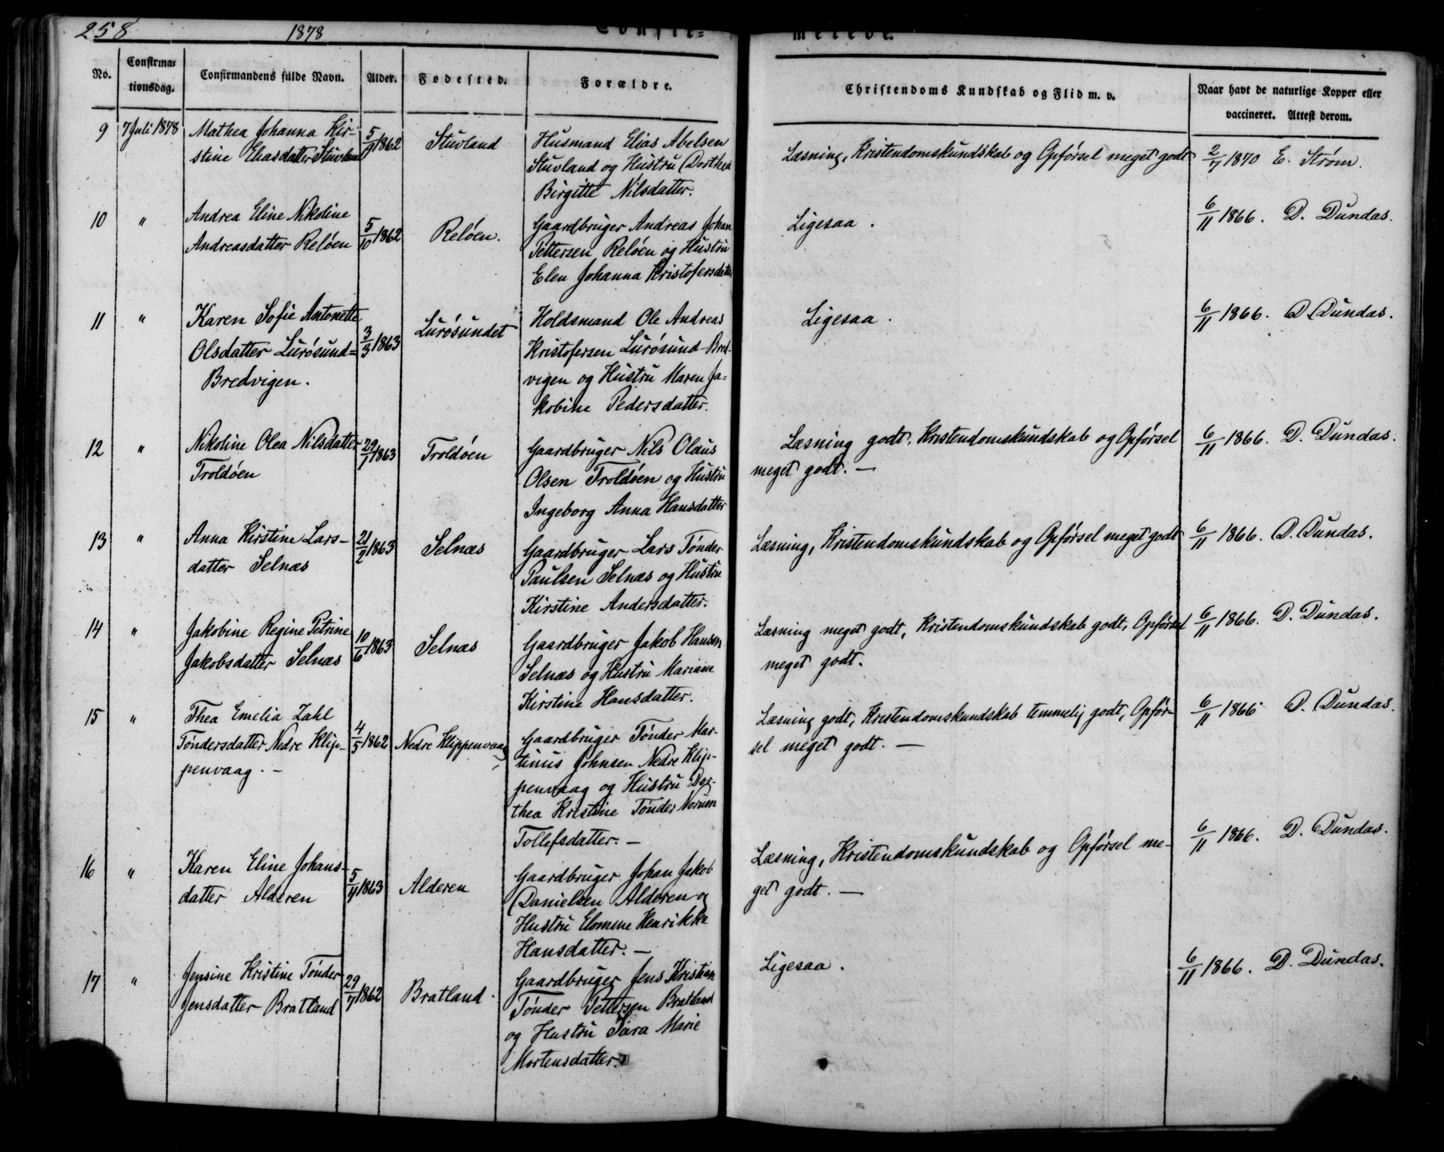 258 1878 Confir= merede.
No. Confirma= tionsdag. Confirmandens fulde Navn. Alder. Fødested. Forældre. Christendoms Kundskab og Flid m. v. Naar havt de naturlige Kopper eller vaccineret. Attest derom.
9 7 Juli 1878 Mathea Johanna Kir- 5/9 1862 Stuvland Husmand Elias Abelsen Læsning, Kristendomskundskab og Opførsel meget godt 2/7 1870 E. Strøm.
stine Eliasdatter Stuvland Stuvland og Hustru Dorthea
Birgitte Nilsdatter.
10 " Andrea Eline Nikoline 5/10 1862 Reløen. Gaardbruger Andreas Johan Ligesaa. 6/11 1866. D. Dundas.
Andreasdatter Reløen Pettersen Reløen og Hustru
Elen Johanna Kristofersdatter
11 " Karen Sofie Antonette 3/3 1863 Lurøsundet Holdsmand Ole Andreas Ligesaa. 6/11 1866. D. Dundas.
Olsdatter Lurøsund= Kristofersen Lurøsund-Bred-
Bredvigen. vigen og Hustru Maren Ja-
kobine Pedersdatter.
12 " Nikoline Olea Nilsdatter 29/7 1863 Troldøen Gaardbruger Nils Olaus Læsning godt. Kristendomskundskab og Opførsel 6/11 1866. D. Dundas.
Troldøen Olsen Troldøen og Hustru meget godt. —
Ingeborg Anna Hansdatter
13 " Anna Kirstine Lars- 21/7 1863 Selnæs Gaardbruger Lars Tønder Læsning, Kristendomskundskab og Opførsel meget godt 6/11 1866. D. Dundas.
datter Selnæs Paulsen Selnæs og Hustru
Kirstine Andersdatter.
14 " Jakobine Regine Petrine 10/6 1863 Selnæs Gaardbruger Jakob Hansen Læsning meget godt, Kristendomskundskab godt, Opførsel 6/11 1866. D. Dundas.
Jakobsdatter Selnæs Selnæs og Hustru Mariane meget godt.
Kirstine Hansdatter.
15 " Thea Emelia Zahl 4/5 1862 Nedre Klippenvaag Gaardbruger Tønder Mar- Læsning godt, Kristendomskundskab temmelig godt, Opfør- 6/11 1866 D. Dundas.
Tøndersdatter Nedre Klip- tinus Johnsen Nedre Klip- sel meget godt. —
penvaag. - penvaag og Hustru Dor-
thea Kristine Tønder Norum
Tollefsdatter. —
16 " Karen Eline Johans- 5/4 1863 Alderen Gaardbruger Johan Jakob Læsning, Kristendomskundskab og Opførsel me- 6/11 1866. D. Dundas.
datter Alderen Danielsen Alderen og get godt. —
Hustru Elomene Henrikke
Hansdatter. —
17 " Jensine Kristine Tønder 29/7 1862 Bratland. Gaardbruger Jens Kristian Ligesaa. 6/11 1866. D. Dundas.
Jensdatter Bratland Tønder Pettersen Bratland
og Hustru Sara Marie
Mortensdatter.